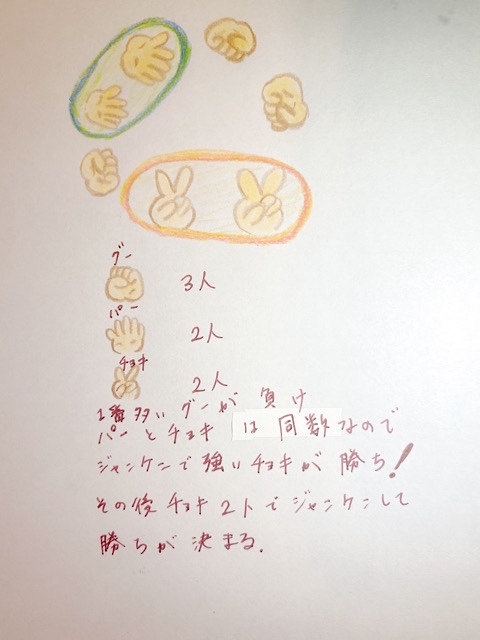 グー
3人
パー
2人
チョキ
2人
1番多いグーが負け
パーとチョキは同数なので
ジャンケンで強いチョキが勝ち!
その後チョキ2人でジャンケンして
勝ちが決まる.